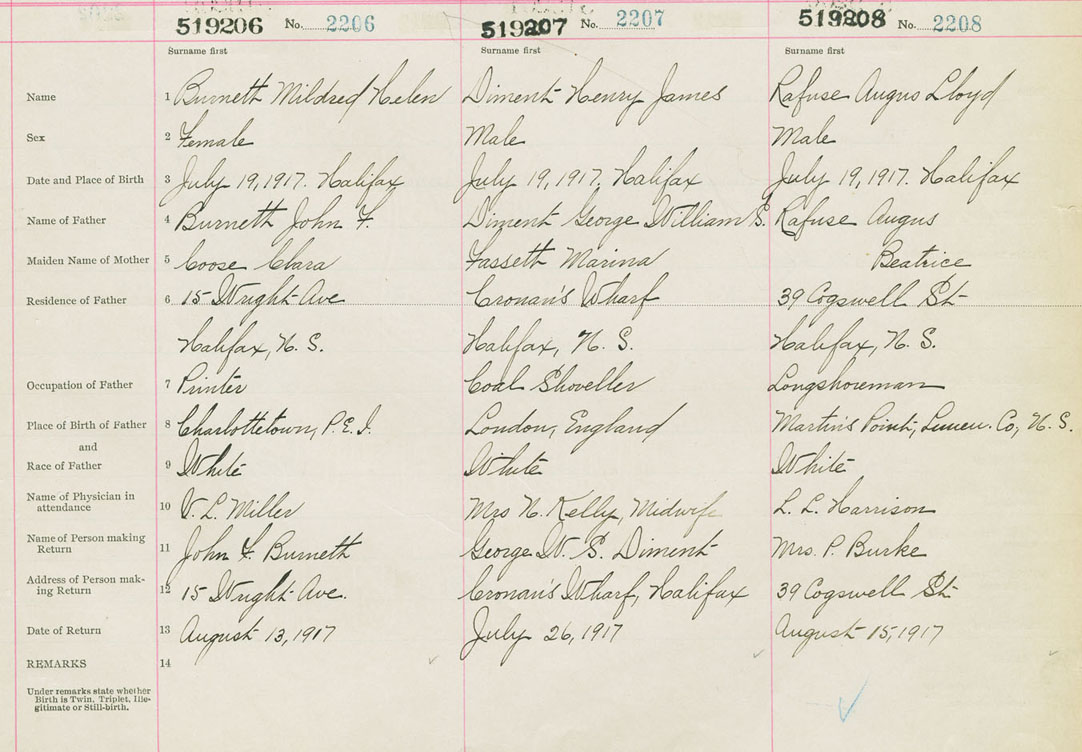 519206 No. 2206 519207 No. 2207 519208 No. 2208
Surname first Surname first Surname first
Name 1 Burnett Mildred Helen Diment Henry James Rafuse Angus Lloyd
Sex 2 Female Male Male
Date and Place of Birth 3 July 19, 1917. Halifax July 19, 1917. Halifax July 19, 1917. Halifax
Name of Father 4 Burnett John F. Diment George William S. Rafuse Angus
Maiden Name of Mother 5 Coose Clara Fassett Marina Beatrice
Residence of Father 6 15 Wright Ave Cronan's Wharf 39 Cogswell St
Halifax, N. S. Halifax, N. S. Halifax, N. S.
Occupation of Father 7 Printer Coal Shoveller Longshoreman
Place of Birth of Father 8 Charlottetown, P.E.I. London, England Martin's Point, Lunen. Co, N. S.
and
Race of Father 9 White White White
Name of Physician in
attendance 10 V. L. Miller Mrs N. Kelly, Midwife L. L. Harrison
Name of Person making
Return 11 John F. Burnett George W. S. Diment Mrs. P. Burke
Address of Person mak-
ing Return 12 15 Wright Ave. Cronan's Wharf, Halifax 39 Cogswell St
Date of Return 13 August 13, 1917 July 26, 1917 August 15, 1917
REMARKS 14
Under remarks state whether
Birth is Twin, Triplet, Ille-
gitimate or Still-birth.